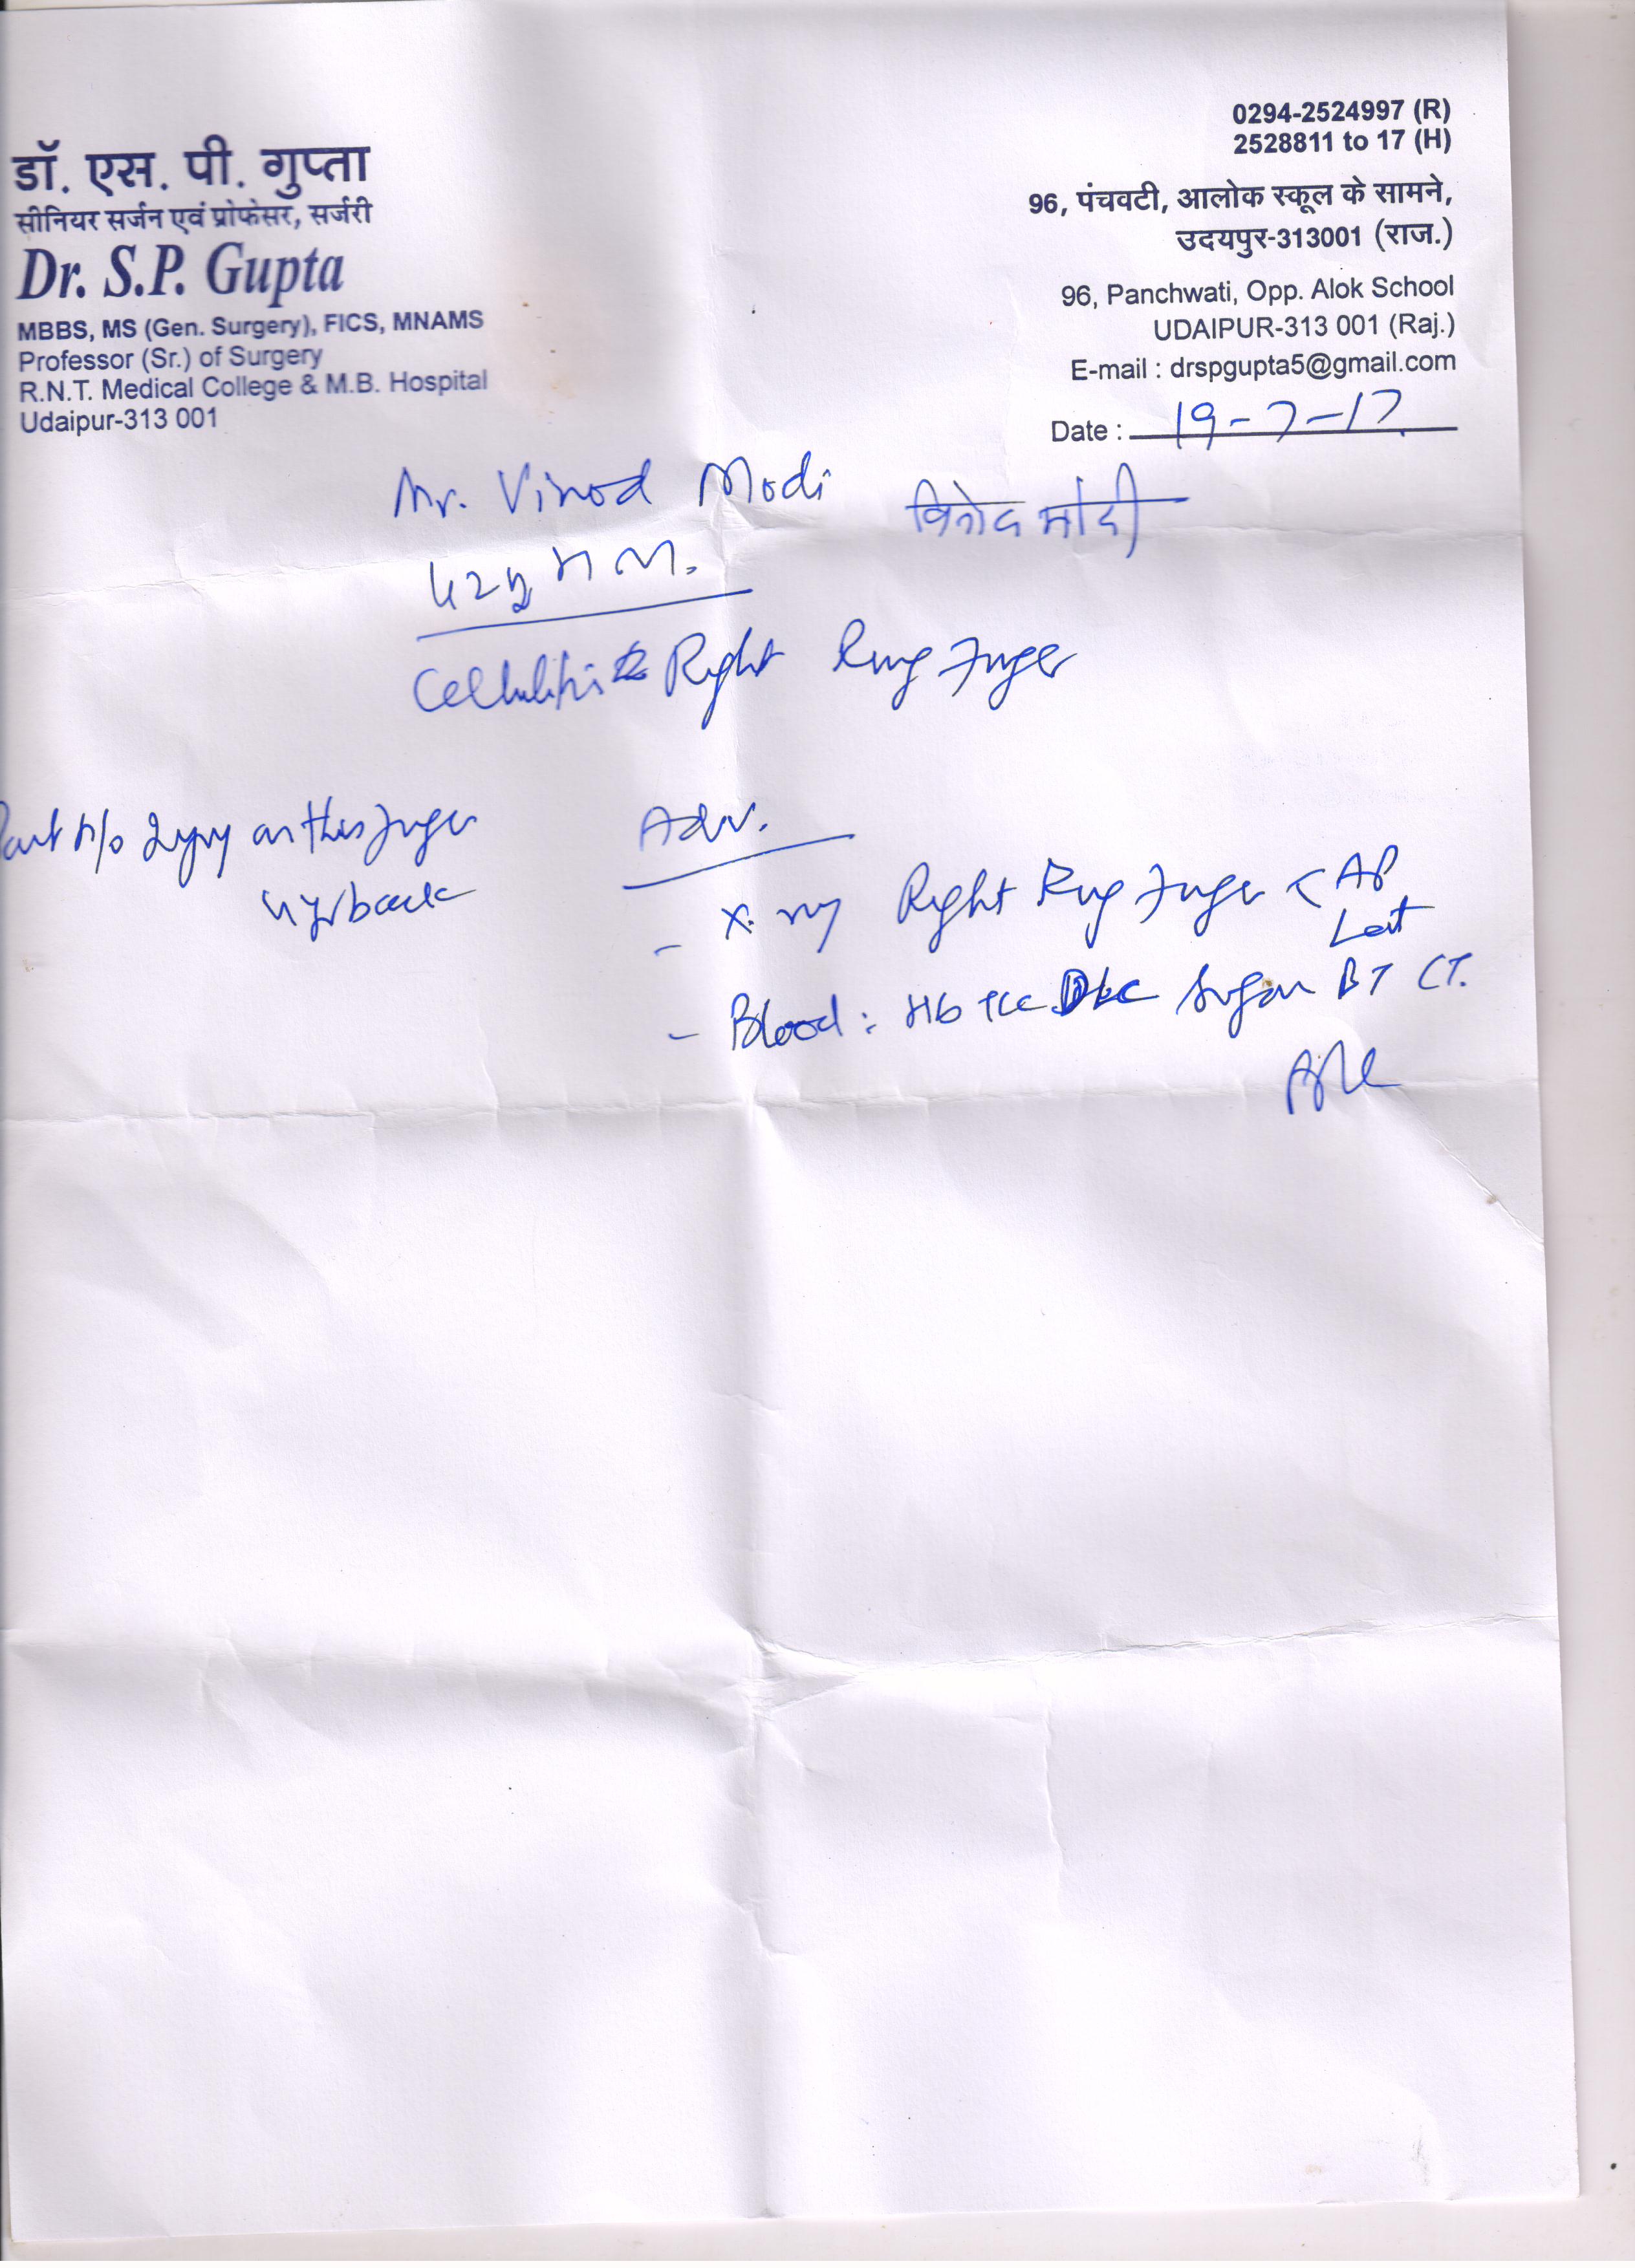 डॉ. एस. पी. गुप्ता
सीनियर सर्जन एवं प्रोफेसर, सर्जरी
Dr. S.P. Gupta
MBBS, MS (Gen. Surgery), FICS, MNAMS
Professor (Sr.) of Surgery
R.N.T. Medical College & M.B. Hospital
Udaipur-313 001
0294-2524997 (R)
2528811 to 17 (H)
96, पंचवटी, आलोक स्कूल के सामने,
उदयपुर-313001 (राज.)
96, Panchwati, Opp. Alok School
UDAIPUR-313 001 (Raj.)
E-mail : drspgupta5@gmail.com
Date : 19-7-17
Mr. Vinod Modi विनोद मोदी
Cellulitis Right Ring Finger
Past H/o Injury on this finger
back
Adv.
- X-ray Right Ring Finger < AP
Lat
- Blood: Hb TLC DLC Sugar BT CT.